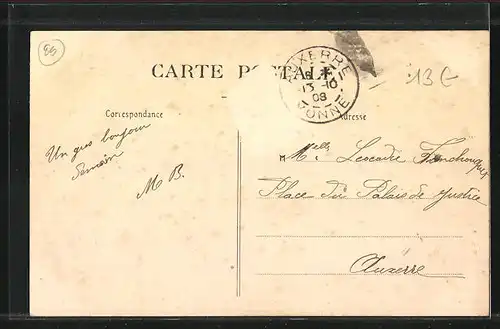 86
CARTE POSTALE
AUXERRE
13 -10
08
YONNE
13 €
Correspondance
Adresse
Un gros bonjour
M B.
Melle Lescadre
Place du Palais de Justice
Auxerre